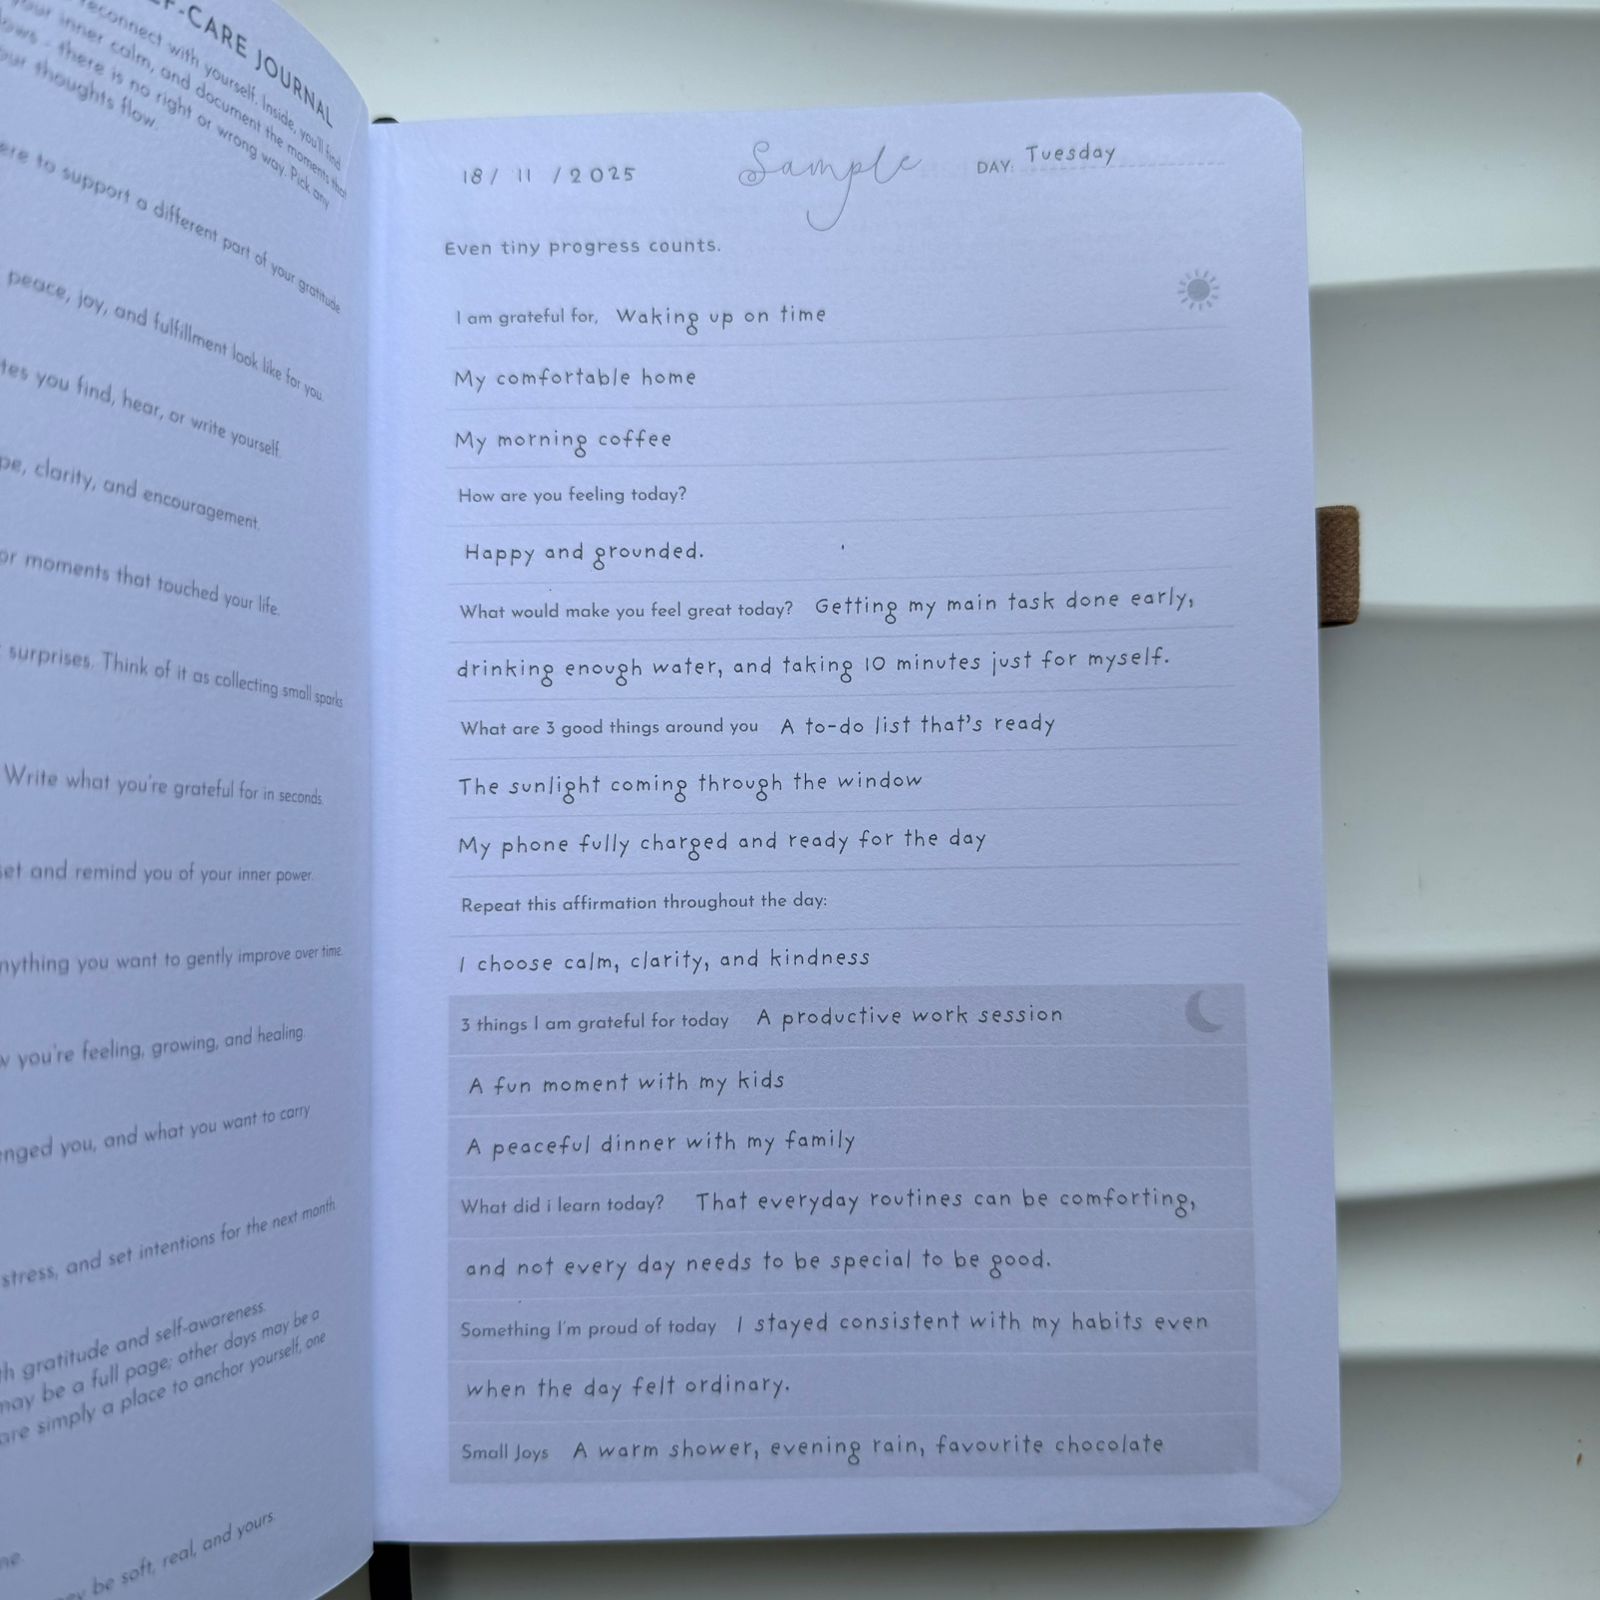 -CARE JOURNAL
reconnect with yourself. Inside, you'll find
your inner calm, and document the moments that
there is no right or wrong way. Pick any
our thoughts flow.
to support a different part of your gratitude
peace, joy, and fulfillment look like for you.
you find, hear, or write yourself.
clarity, and encouragement.
or moments that touched your life.
surprises. Think of it as collecting small sparks
Write what you're grateful for in seconds.
and remind you of your inner power.
you want to gently improve over time.
you're feeling, growing, and healing.
you, and what you want to carry
stress, and set intentions for the next month.
gratitude and self-awareness.
may be a full page; other days may be a
are simply a place to anchor yourself, one
be soft, real, and yours.
18/ 11 /2025
Sample
DAY: Tuesday
Even tiny progress counts.
I am grateful for, Waking up on time
My comfortable home
My morning coffee
How are you feeling today?
Happy and grounded.
What would make you feel great today? Getting my main task done early,
drinking enough water, and taking 10 minutes just for myself.
What are 3 good things around you A to-do list that's ready
The sunlight coming through the window
My phone fully charged and ready for the day
Repeat this affirmation throughout the day:
I choose calm, clarity, and kindness
3 things I am grateful for today A productive work session
A fun moment with my kids
A peaceful dinner with my family
What did i learn today? That everyday routines can be comforting,
and not every day needs to be special to be good.
Something I'm proud of today I stayed consistent with my habits even
when the day felt ordinary.
Small Joys A warm shower, evening rain, favourite chocolate